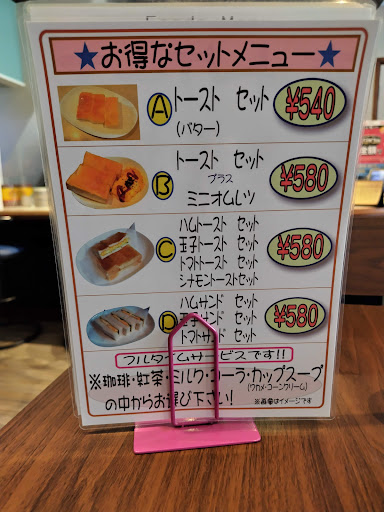 ★お得なセットメニュー★
Ⓐ トースト セット ¥540
(バター)
Ⓑ トースト セット ¥580
プラス
ミニオムレツ
Ⓒ ハムトースト セット ¥580
玉子トースト セット
トマトトースト セット
シナモントーストセット
D ハムサンド セット ¥580
玉子サンド セット
トマトサンド セット
フルタイムサービスです!!
※珈琲・紅茶・ミルク・コーラ・カップスープ
(ワカメ・コーンクリーム)
の中からお選び下さい!
※画像はイメージです